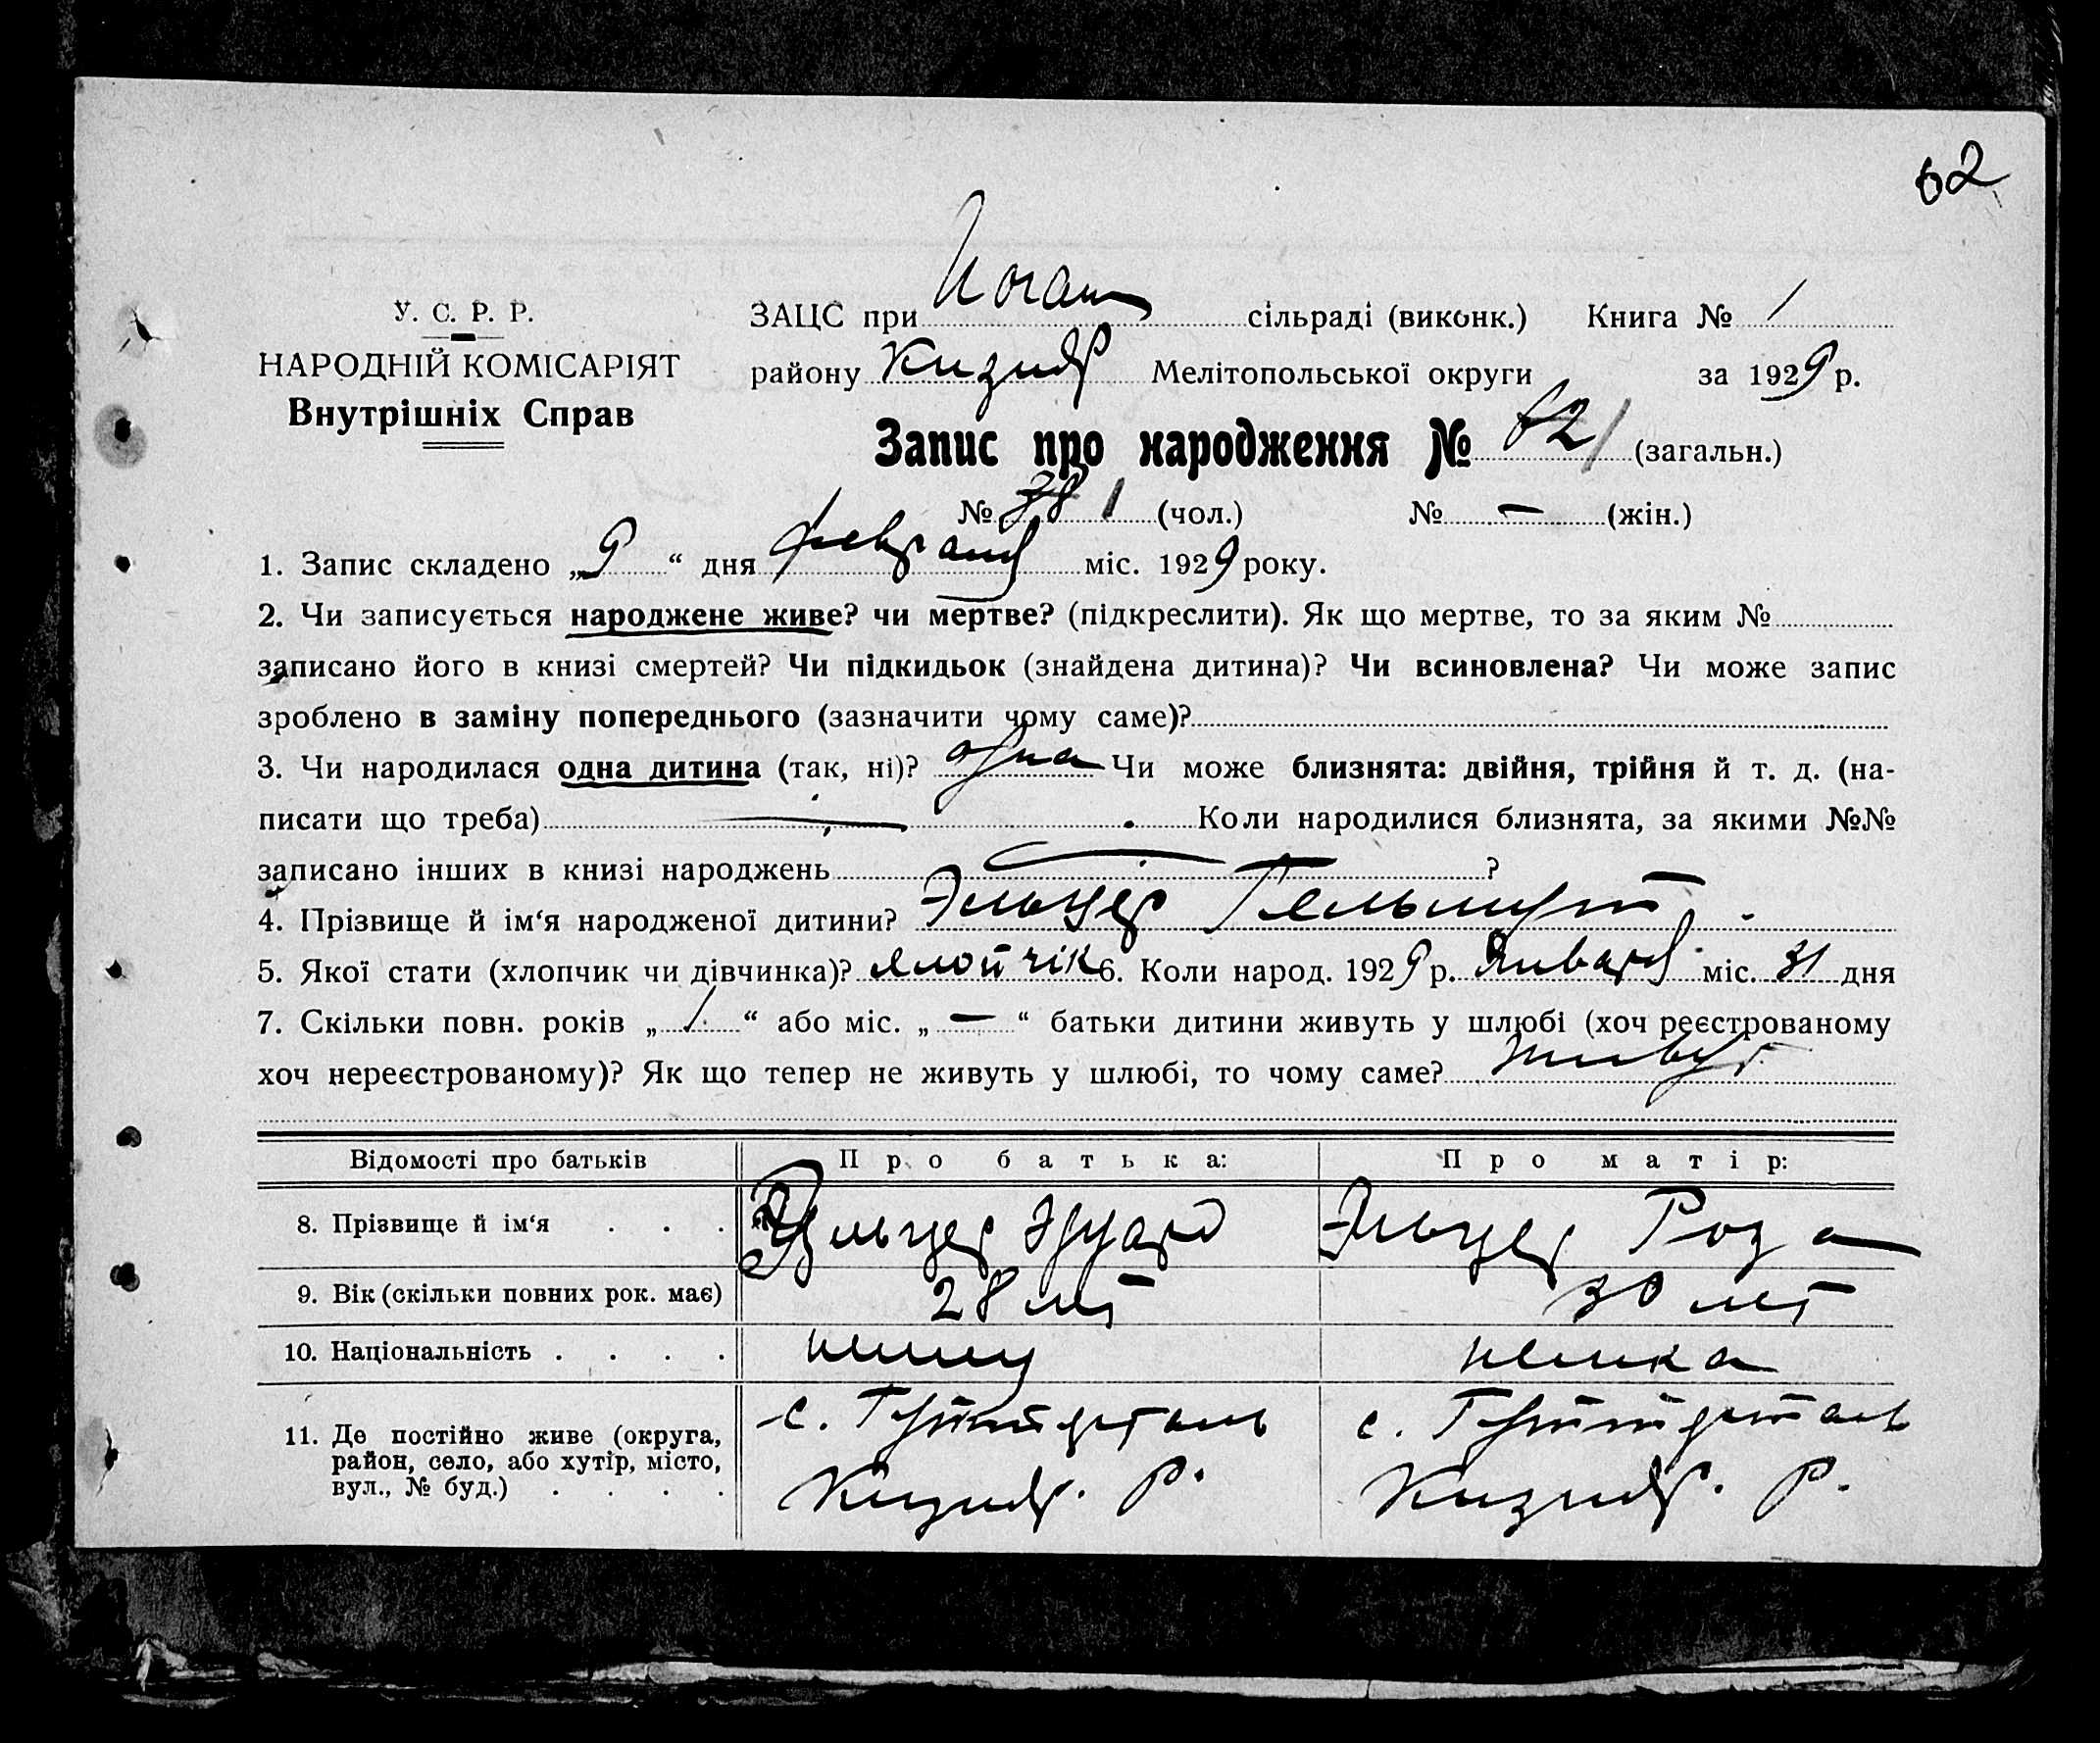 62
У. С. Р. Р.
НАРОДНІЙ КОМІСАРІЯТ
Внутрішніх Справ
ЗАЦС при сільраді (виконк.) Книга № 1
району Мелітопольської округи за 1929 р.
Запис про народження № (загальн.)
№ 1 (чол.) № — (жін.)
1. Запис складено „9“ дня февраля міс. 1929 року.
2. Чи записується народжене живе? чи мертве? (підкреслити). Як що мертве, то за яким №
записано його в книзі смертей? Чи підкидьок (знайдена дитина)? Чи всиновлена? Чи може запис
зроблено в заміну попереднього (зазначити чому саме)?
3. Чи народилася одна дитина (так, ні)? одна Чи може близнята: двійня, трійня й т. д. (на-
писати що треба) — Коли народилися близнята, за якими №№
записано інших в книзі народжень — ?
4. Прізвище й ім‘я народженої дитини? Эльцер Гельмут
5. Якої стати (хлопчик чи дівчинка)? 6. Коли народ. 1929 р. Января міс. 31 дня
7. Скільки повн. років „1“ або міс. „—“ батьки дитини живуть у шлюбі (хоч реєстрованому
хоч нереєстрованому)? Як що тепер не живуть у шлюбі, то чому саме? живут
Відомості про батьків Про батька: Про матір:
8. Прізвище й ім‘я . . . Эльцер Эдуард Эльцер Роза
9. Вік (скільки повних рок. має) 28 лет 30 лет
10. Національність . . . . немец немка
11. Де постійно живе (округа,
район, село, або хутір, місто,
вул., № буд.) . . . .
с. Гуттерталь с. Гуттерталь
Р. Р.